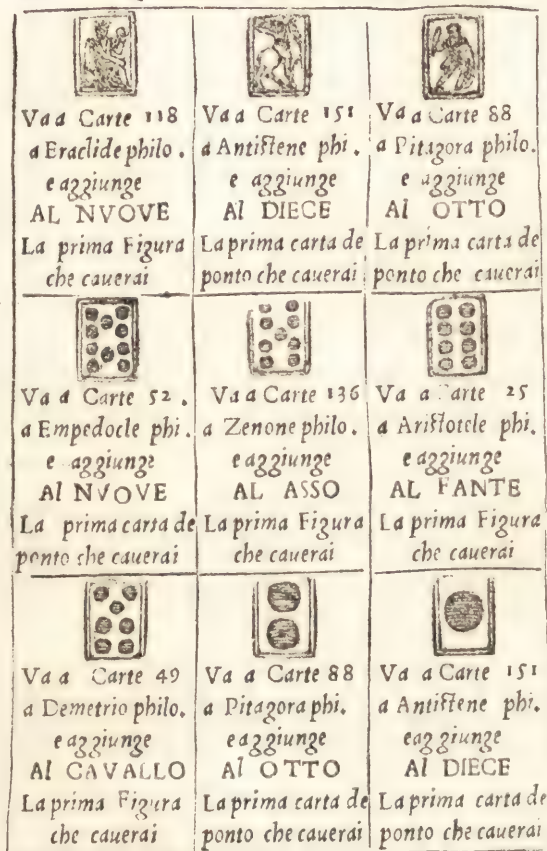 Va a Carte 118
a Eraclide philo.
e aggiunge
AL NVOVE
La prima Figura
che cauerai
Va a Carte 151
a Antistene phi.
e aggiunge
Al DIECE
La prima carta de
ponto che cauerai
Va a Carte 88
a Pitagora philo.
e aggiunge
Al OTTO
La prima carta de
ponto che cauerai
Va a Carte 52.
a Empedocle phi.
e aggiunge
Al NVOVE
La prima carta de
ponto che cauerai
Va a Carte 136
a Zenone philo.
e aggiunge
AL ASSO
La prima Figura
che cauerai
Va a Carte 25
a Aristotele phi.
e aggiunge
AL FANTE
La prima Figura
che cauerai
Va a Carte 49
a Demetrio philo.
e aggiunge
Al CAVALLO
La prima Figura
che cauerai
Va a Carte 88
a Pitagora phi.
e aggiunge
Al OTTO
La prima carta de
ponto che cauerai
Va a Carte 151
a Antistene phi.
e aggiunge
Al DIECE
La prima carta de
ponto che cauerai